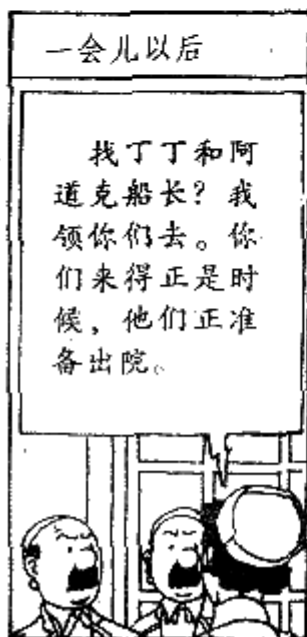 一会儿以后
找丁丁和阿
道克船长？我
领你们去。你
们来得正是时
候，他们正准
备出院。